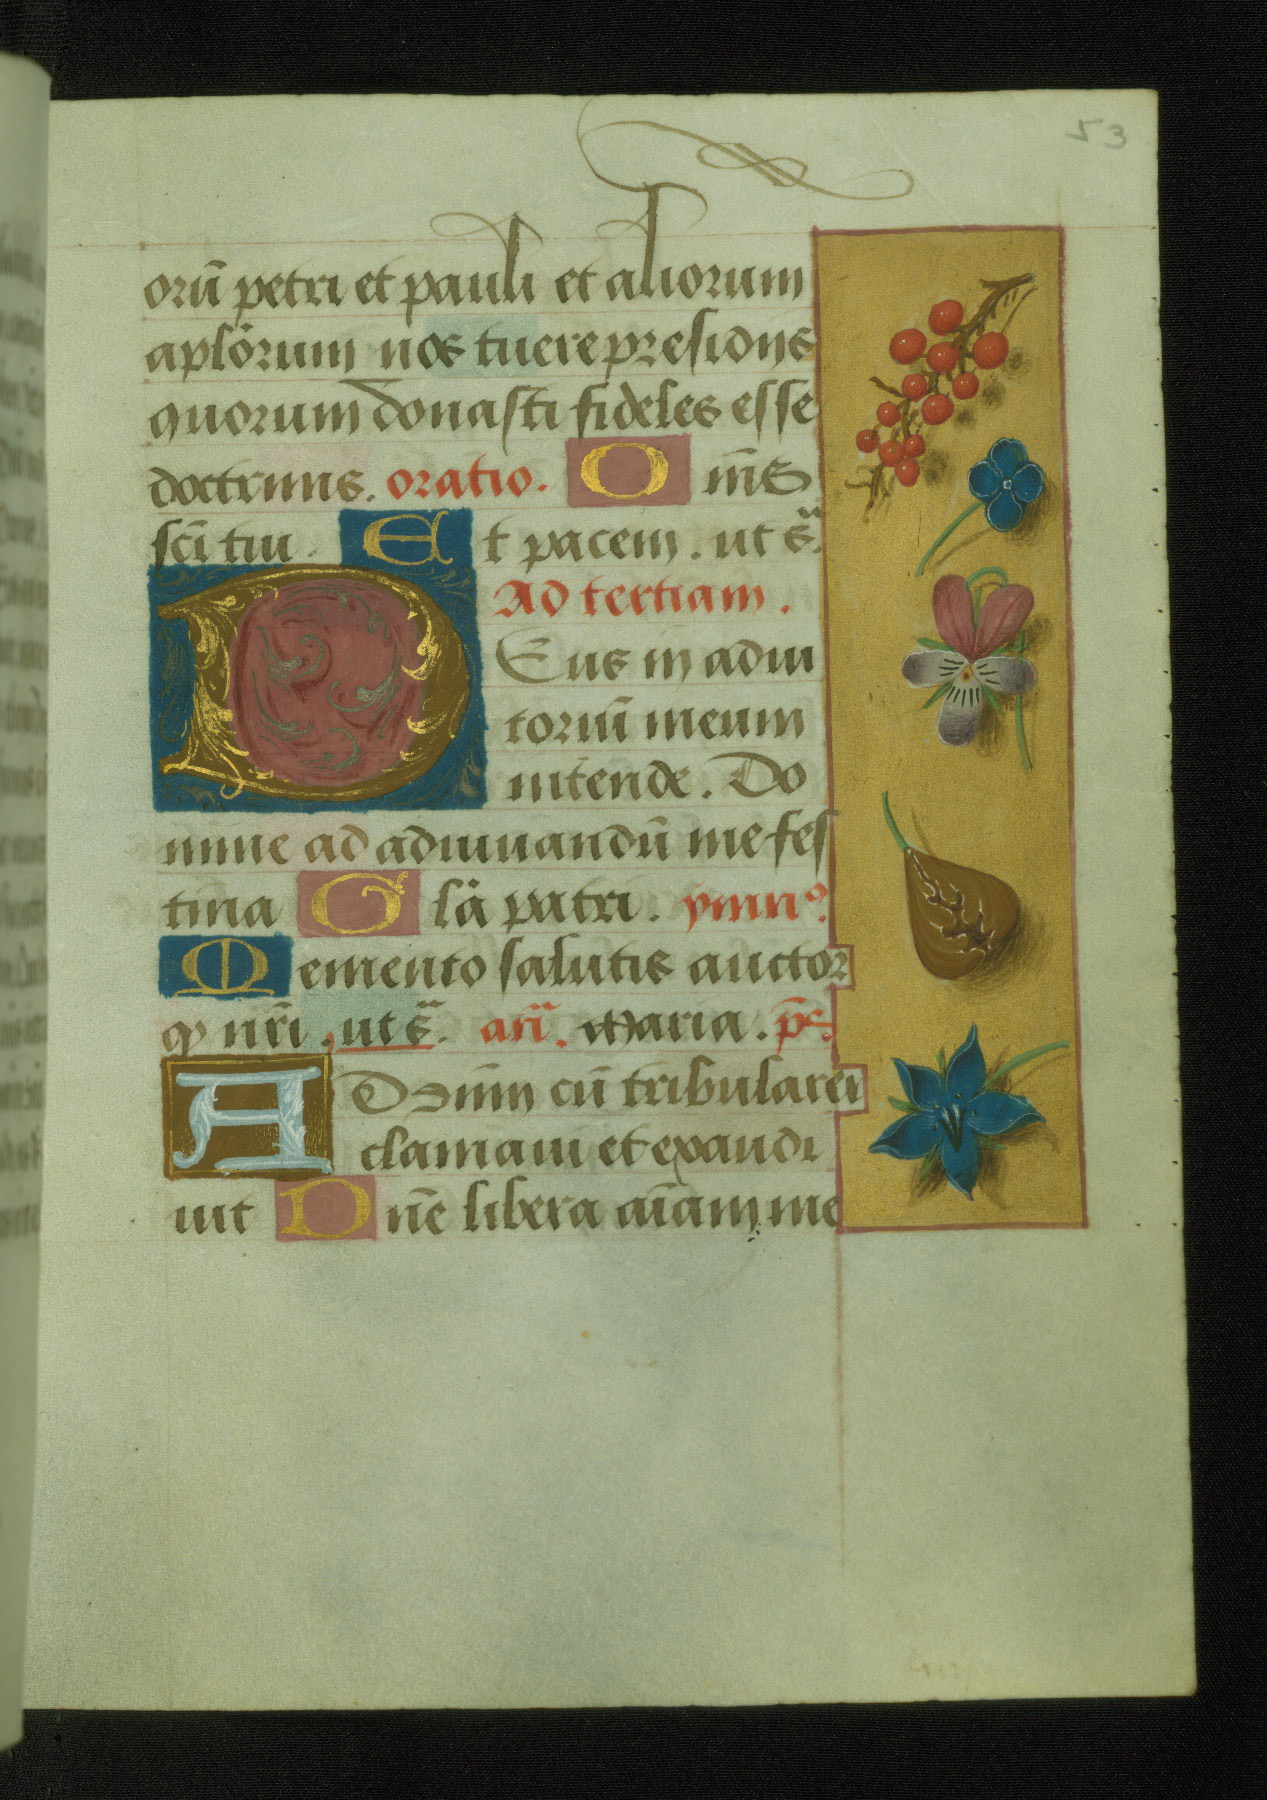 53
orū petri et pauli et aliorum
aplōrum nos tuere presidiis
quorum donasti fideles esse
doctrinis. oratio. O īns
scī tui. Et pacem. ut sᵃ.
Ad tertiam.
Deus in adiu
toriū meum
intende. Do
mine ad adiuuandū me fes
tina Glā patri. ymnꝰ.
Memento salutis auctor
qꝫ nr̄i. ut sᵃ. an̄. Maria. ps̄.
AD dn̄m cū tribularer
clamaui et exaudi
uit Dn̄e libera aīam me